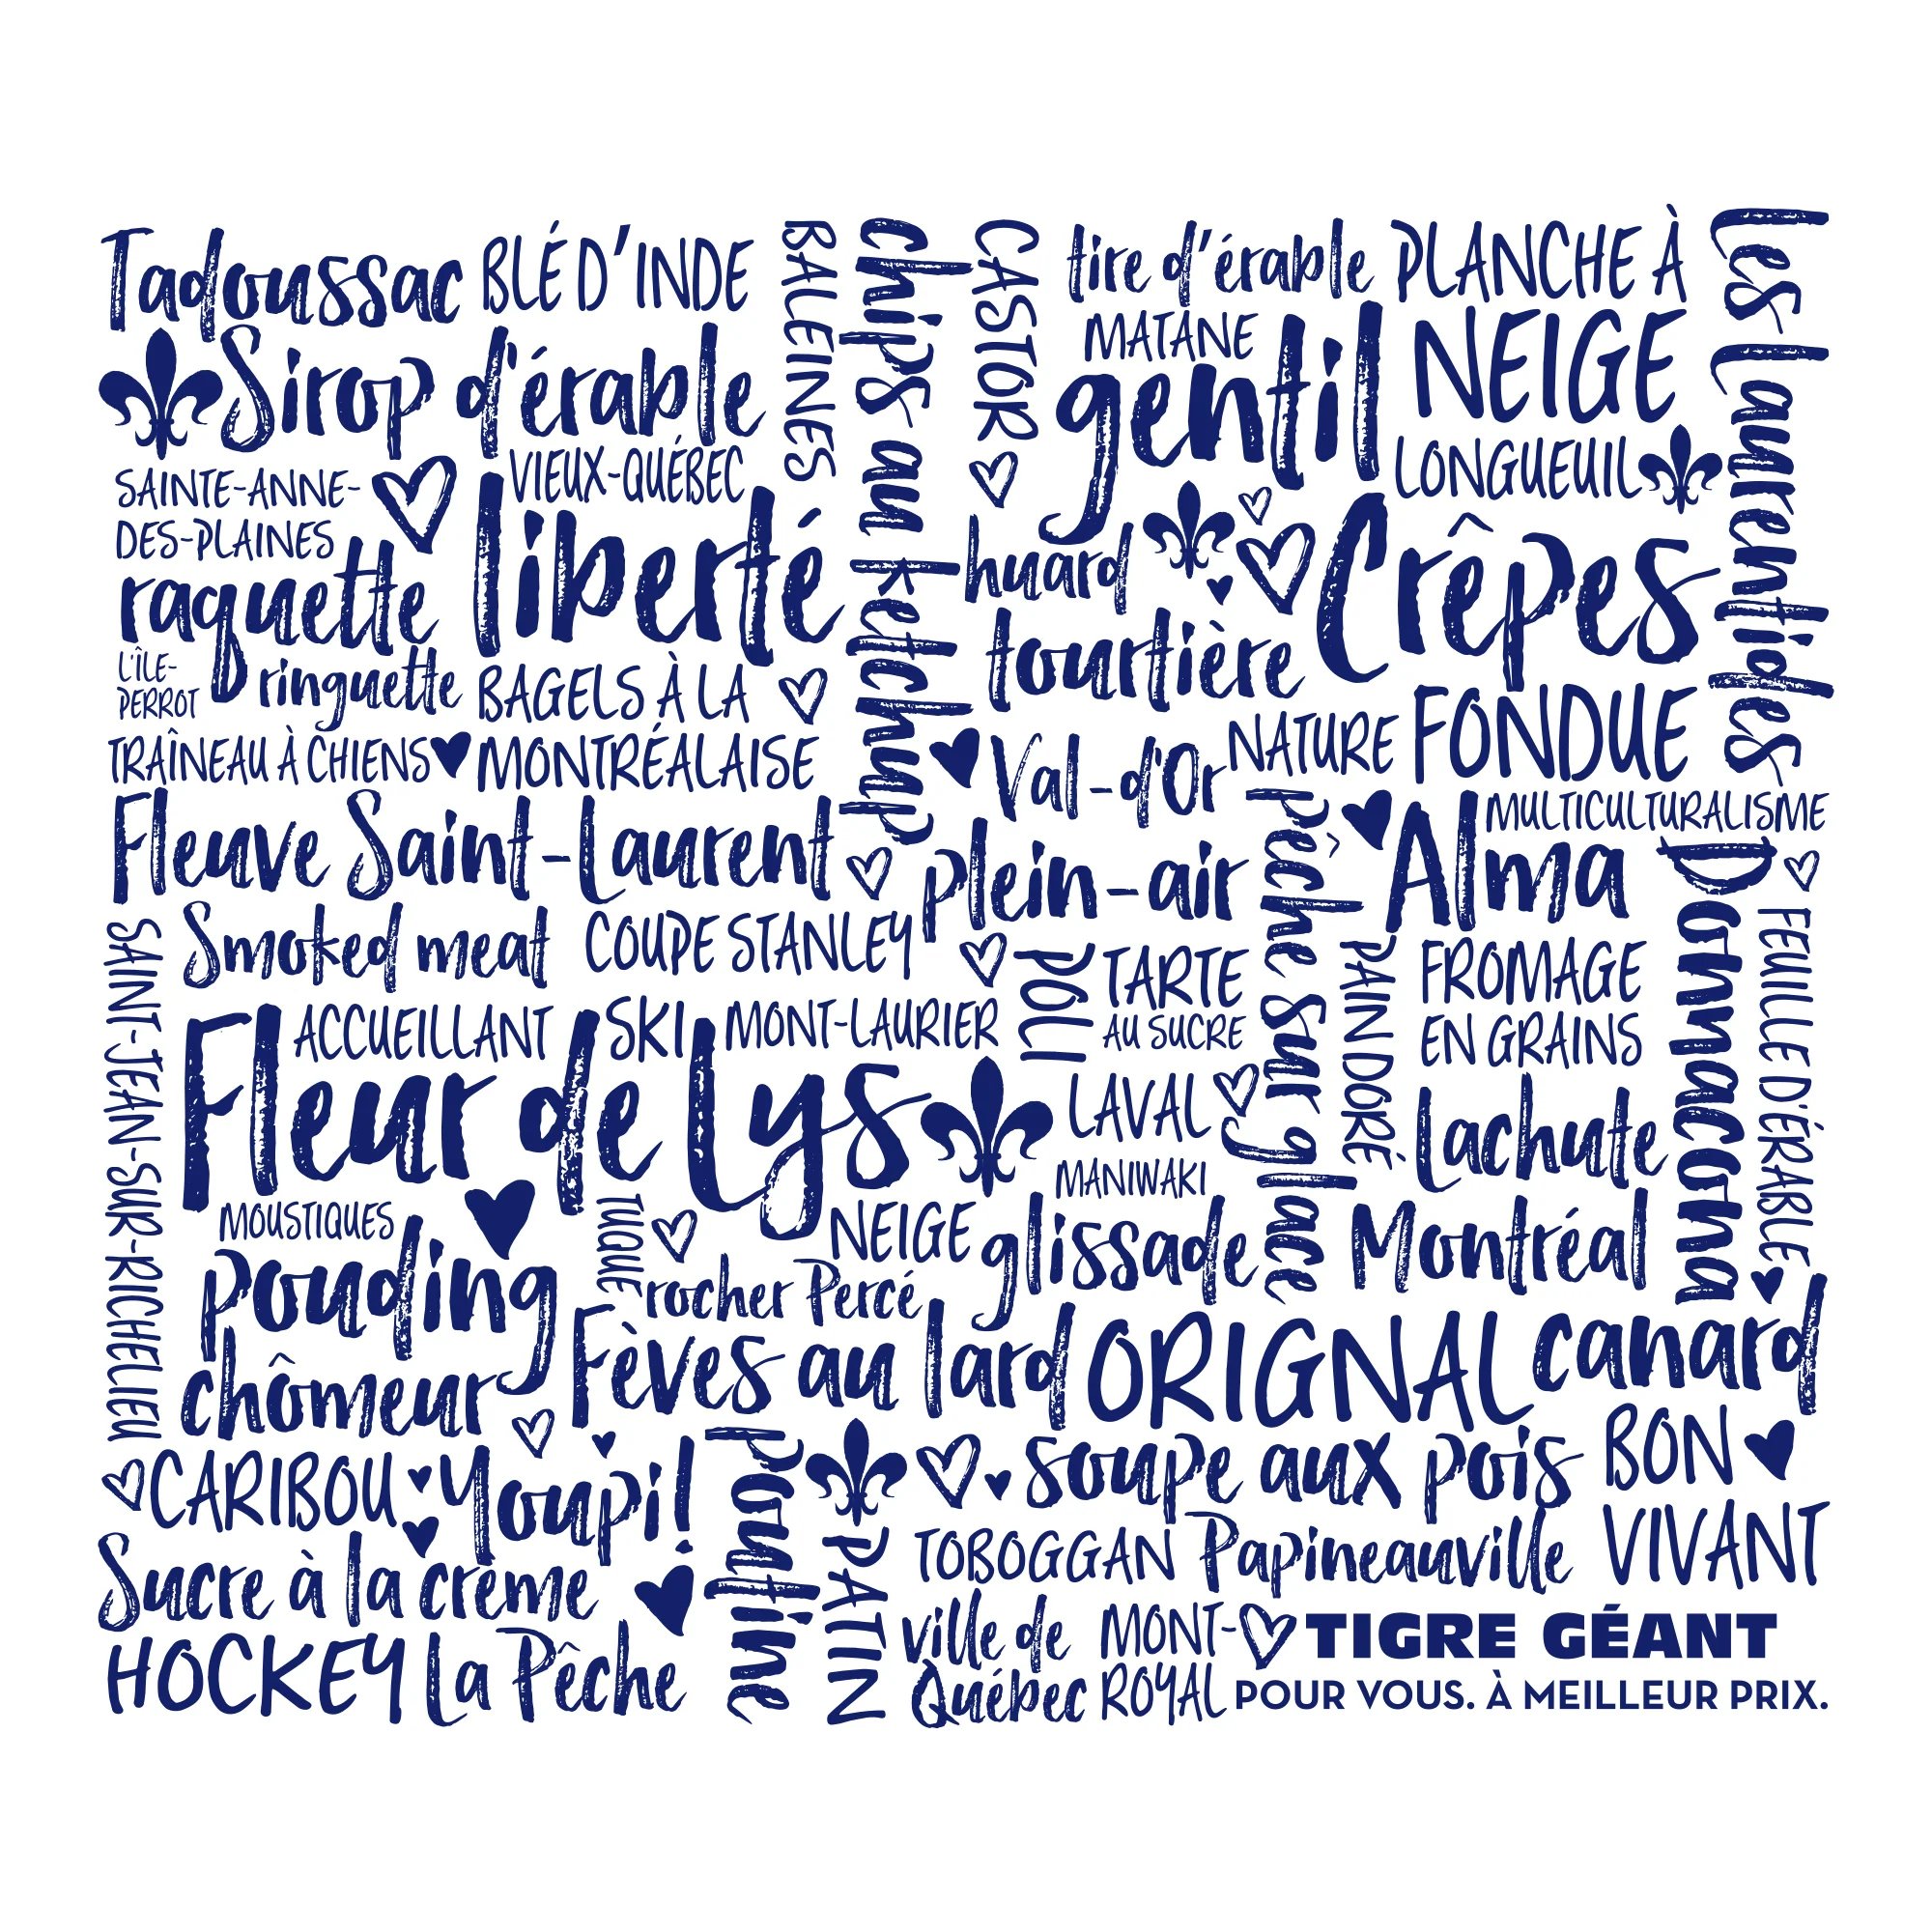 Tadoussac
BLÉ D'INDE
BALEINES
chips au ketchup
CASTOR
tire d'érable
PLANCHE À
NEIGE
Les Laurentides
Sirop d'érable
MATANE
gentil
LONGUEUIL
SAINTE-ANNE-
DES-PLAINES
VIEUX-QUÉBEC
liberté
raquette
huard
Crêpes
tourtière
L'ÎLE-
PERROT
ringuette
BAGELS À LA
MONTRÉALAISE
TRAÎNEAU À CHIENS
Val-d'Or
NATURE
FONDUE
Fleuve Saint-Laurent
plein-air
pêche sur glace
Alma
MULTICULTURALISME
Donnacona
FEUILLE D'ÉRABLE
SAINT-JEAN-SUR-RICHELIEU
Smoked meat
COUPE STANLEY
POLI
TARTE
AU SUCRE
PAIN DORÉ
FROMAGE
EN GRAINS
ACCUEILLANT
SKI
MONT-LAURIER
Fleur de lys
LAVAL
Lachute
MANIWAKI
MOUSTIQUES
TUQUE
NEIGE
glissade
Montréal
pouding
chômeur
rocher Percé
Fèves au lard
ORIGNAL
canard
CARIBOU
Youpi!
poutine
soupe aux pois
BON
VIVANT
Sucre à la crème
PATIN
TOBOGGAN
Papineauville
HOCKEY
La Pêche
ville de
Québec
MONT-
ROYAL
TIGRE GÉANT
POUR VOUS. À MEILLEUR PRIX.